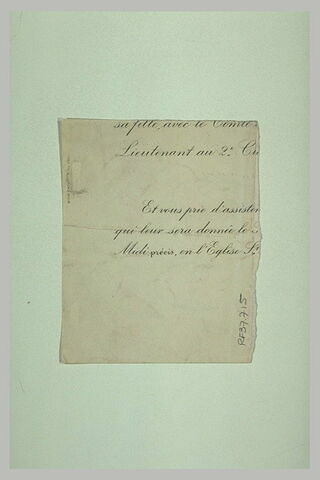 sa fille, avec le Comte
Lieutenant au 2e. Cu
Et vous prie d'assister
qui leur sera donnée le
Midi précis, en l'Eglise St.
RF37,715